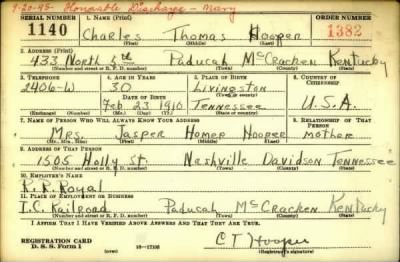 9-20-45- Honorable Discharge - Navy
SERIAL NUMBER 1. NAME (Print) ORDER NUMBER
1140 Charles Thomas Hooper 1382
(First) (Middle) (Last)
2. ADDRESS (Print)
433 North 5th Paducah McCracken Kentucky
(Number and street or R. F. D. number) (Town) (County) (State)
3. TELEPHONE 4. AGE IN YEARS 5. PLACE OF BIRTH 6. COUNTRY OF CITIZENSHIP
2406-W 30 Livingston
DATE OF BIRTH (Town or county)
Feb 23 1910 Tennessee U.S.A.
(Exchange) (Number) (Mo.) (Day) (Yr.) (State or country)
7. NAME OF PERSON WHO WILL ALWAYS KNOW YOUR ADDRESS 8. RELATIONSHIP OF THAT PERSON
Mrs. Jasper Homer Hooper mother
(Mr., Mrs., Miss) (First) (Middle) (Last)
9. ADDRESS OF THAT PERSON
1505 Holly St. Nashville Davidson Tennessee
(Number and street or R. F. D. number) (Town) (County) (State)
10. EMPLOYER'S NAME
R.R. Royal
11. PLACE OF EMPLOYMENT OR BUSINESS
I.C. Railroad Paducah McCracken Kentucky
(Number and street or R. F. D. number) (Town) (County) (State)
I AFFIRM THAT I HAVE VERIFIED ABOVE ANSWERS AND THAT THEY ARE TRUE.
REGISTRATION CARD
D. S. S. Form 1 16-17105 C T Hooper